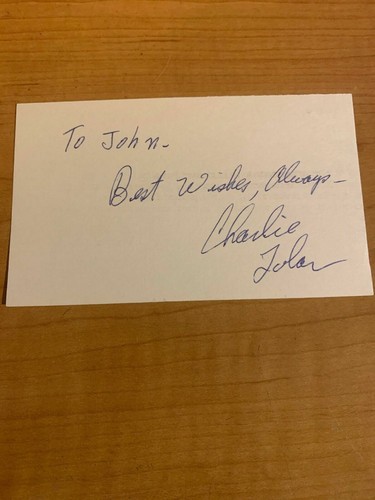 To John-
Best Wishes, Always-
Charlie
Tolar